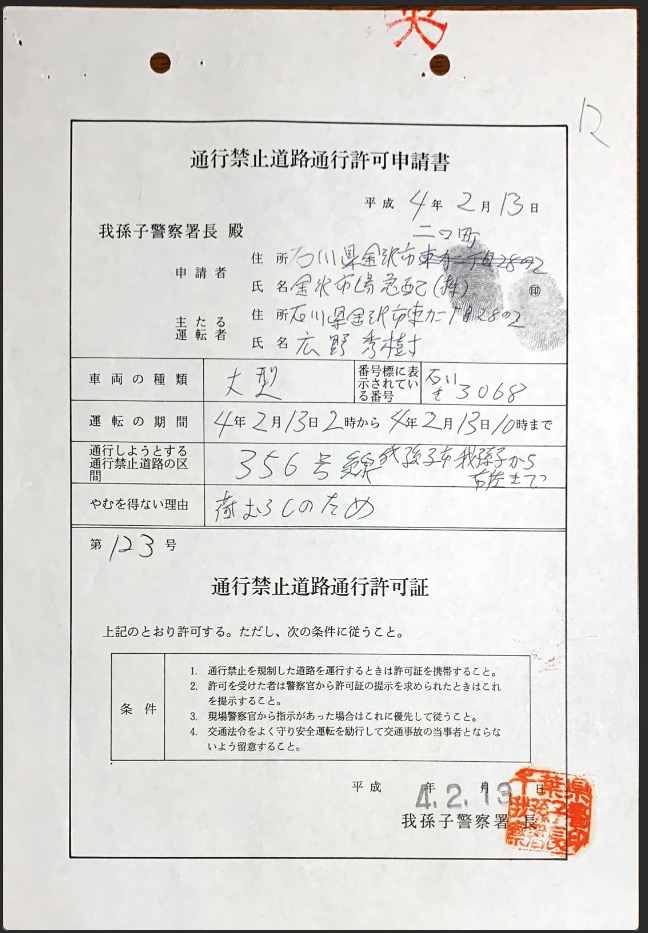 12
通行禁止道路通行許可申請書
平成 4年 2月 13日
我孫子警察署長 殿
二口町
申請者
住所 石川県金沢市東力二丁目28の2
氏名 金沢市場急配(株) ㊞
主たる
運転者
住所 石川県金沢市東力二丁目28の2
氏名 広野秀樹
車両の種類 大型
番号標に表
示されてい
る番号
石川 3068
運転の期間 4年2月13日2時から4年2月13日10時まで
通行しようとする
通行禁止道路の区
間
356号線 我孫子市我孫子から
布佐まで
やむを得ない理由 荷おろしのため
第 123 号
通行禁止道路通行許可証
上記のとおり許可する。ただし、次の条件に従うこと。
条件
1. 通行禁止を規制した道路を運行するときは許可証を携帯すること。
2. 許可を受けた者は警察官から許可証の提示を求められたときはこれ
を提示すること。
3. 現場警察官から指示があった場合はこれに優先して従うこと。
4. 交通法令をよく守り安全運転を励行して交通事故の当事者とならな
いよう留意すること。
平成 年 月 日
4.2.13
我孫子警察署長
千葉県
我孫子警
察署長印